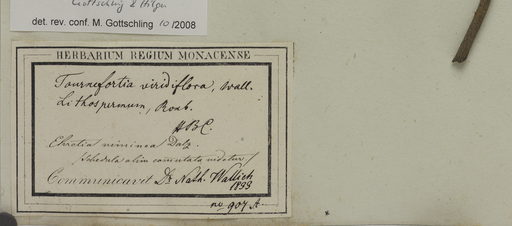 Gottschling & Hilger
det. rev. conf. M. Gottschling 10/2008
HERBARIUM REGIUM MONACENSE
Tournefortia viridiflora, Wall.
Lithospermum, Roxb.
HBC.
Ehretia viminea Dalz.
(schedula olim commutata videtur)
Communicavit Dr. Nath. Wallich
1833
no 907 A.